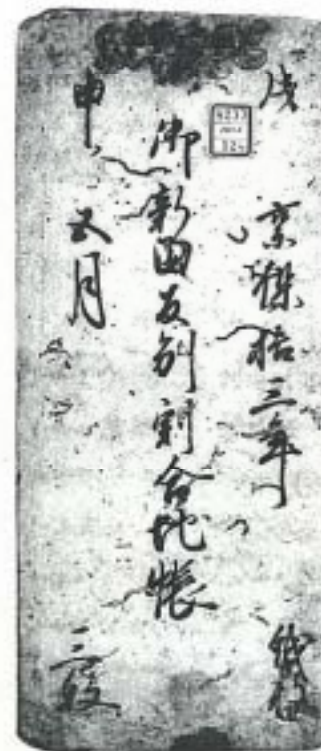 戊 享保拾三年
御新田反別割合地帳
申 五月